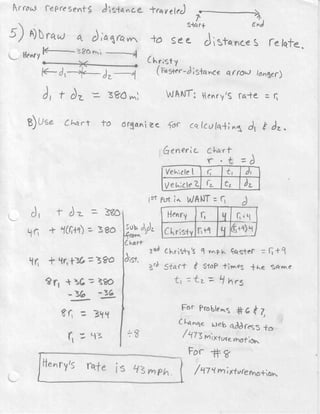 Arrow represents distance traveled
Start End
5) A) Draw a diagram to see distances relate.
Henry 380 mi Christy
(Faster-distance arrow longer)
d₁ d₂
d₁ + d₂ = 380 mi WANT: Henry's rate = r₁
B) Use chart to organize for calculating d₁ & d₂.
Generic Chart
r · t = d
Vehicle 1 r₁ t₁ d₁
Vehicle 2 r₂ t₂ d₂
1st Put in WANT = r₁ d
Henry r₁ 4 r₁·4
Christy r₁+9 4 (r₁+9)4
d₁ + d₂ = 380
4r₁ + 4(r₁+9) = 380
Sub d₁d₂ from chart
4r₁ + 4r₁+36 = 380 dist.
2nd Christy's 9 mph faster = r₁+9
3rd Start & stop times the same
t₁ = t₂ = 4 hrs
8r₁ + 36 = 380
-36 -36
8r₁ = 344
r₁ = 43 ÷8
For Problems #6 & 7,
Change web address to
/473mixturemotion
For #8
/474mixturemotion
Henry's rate is 43 mph.